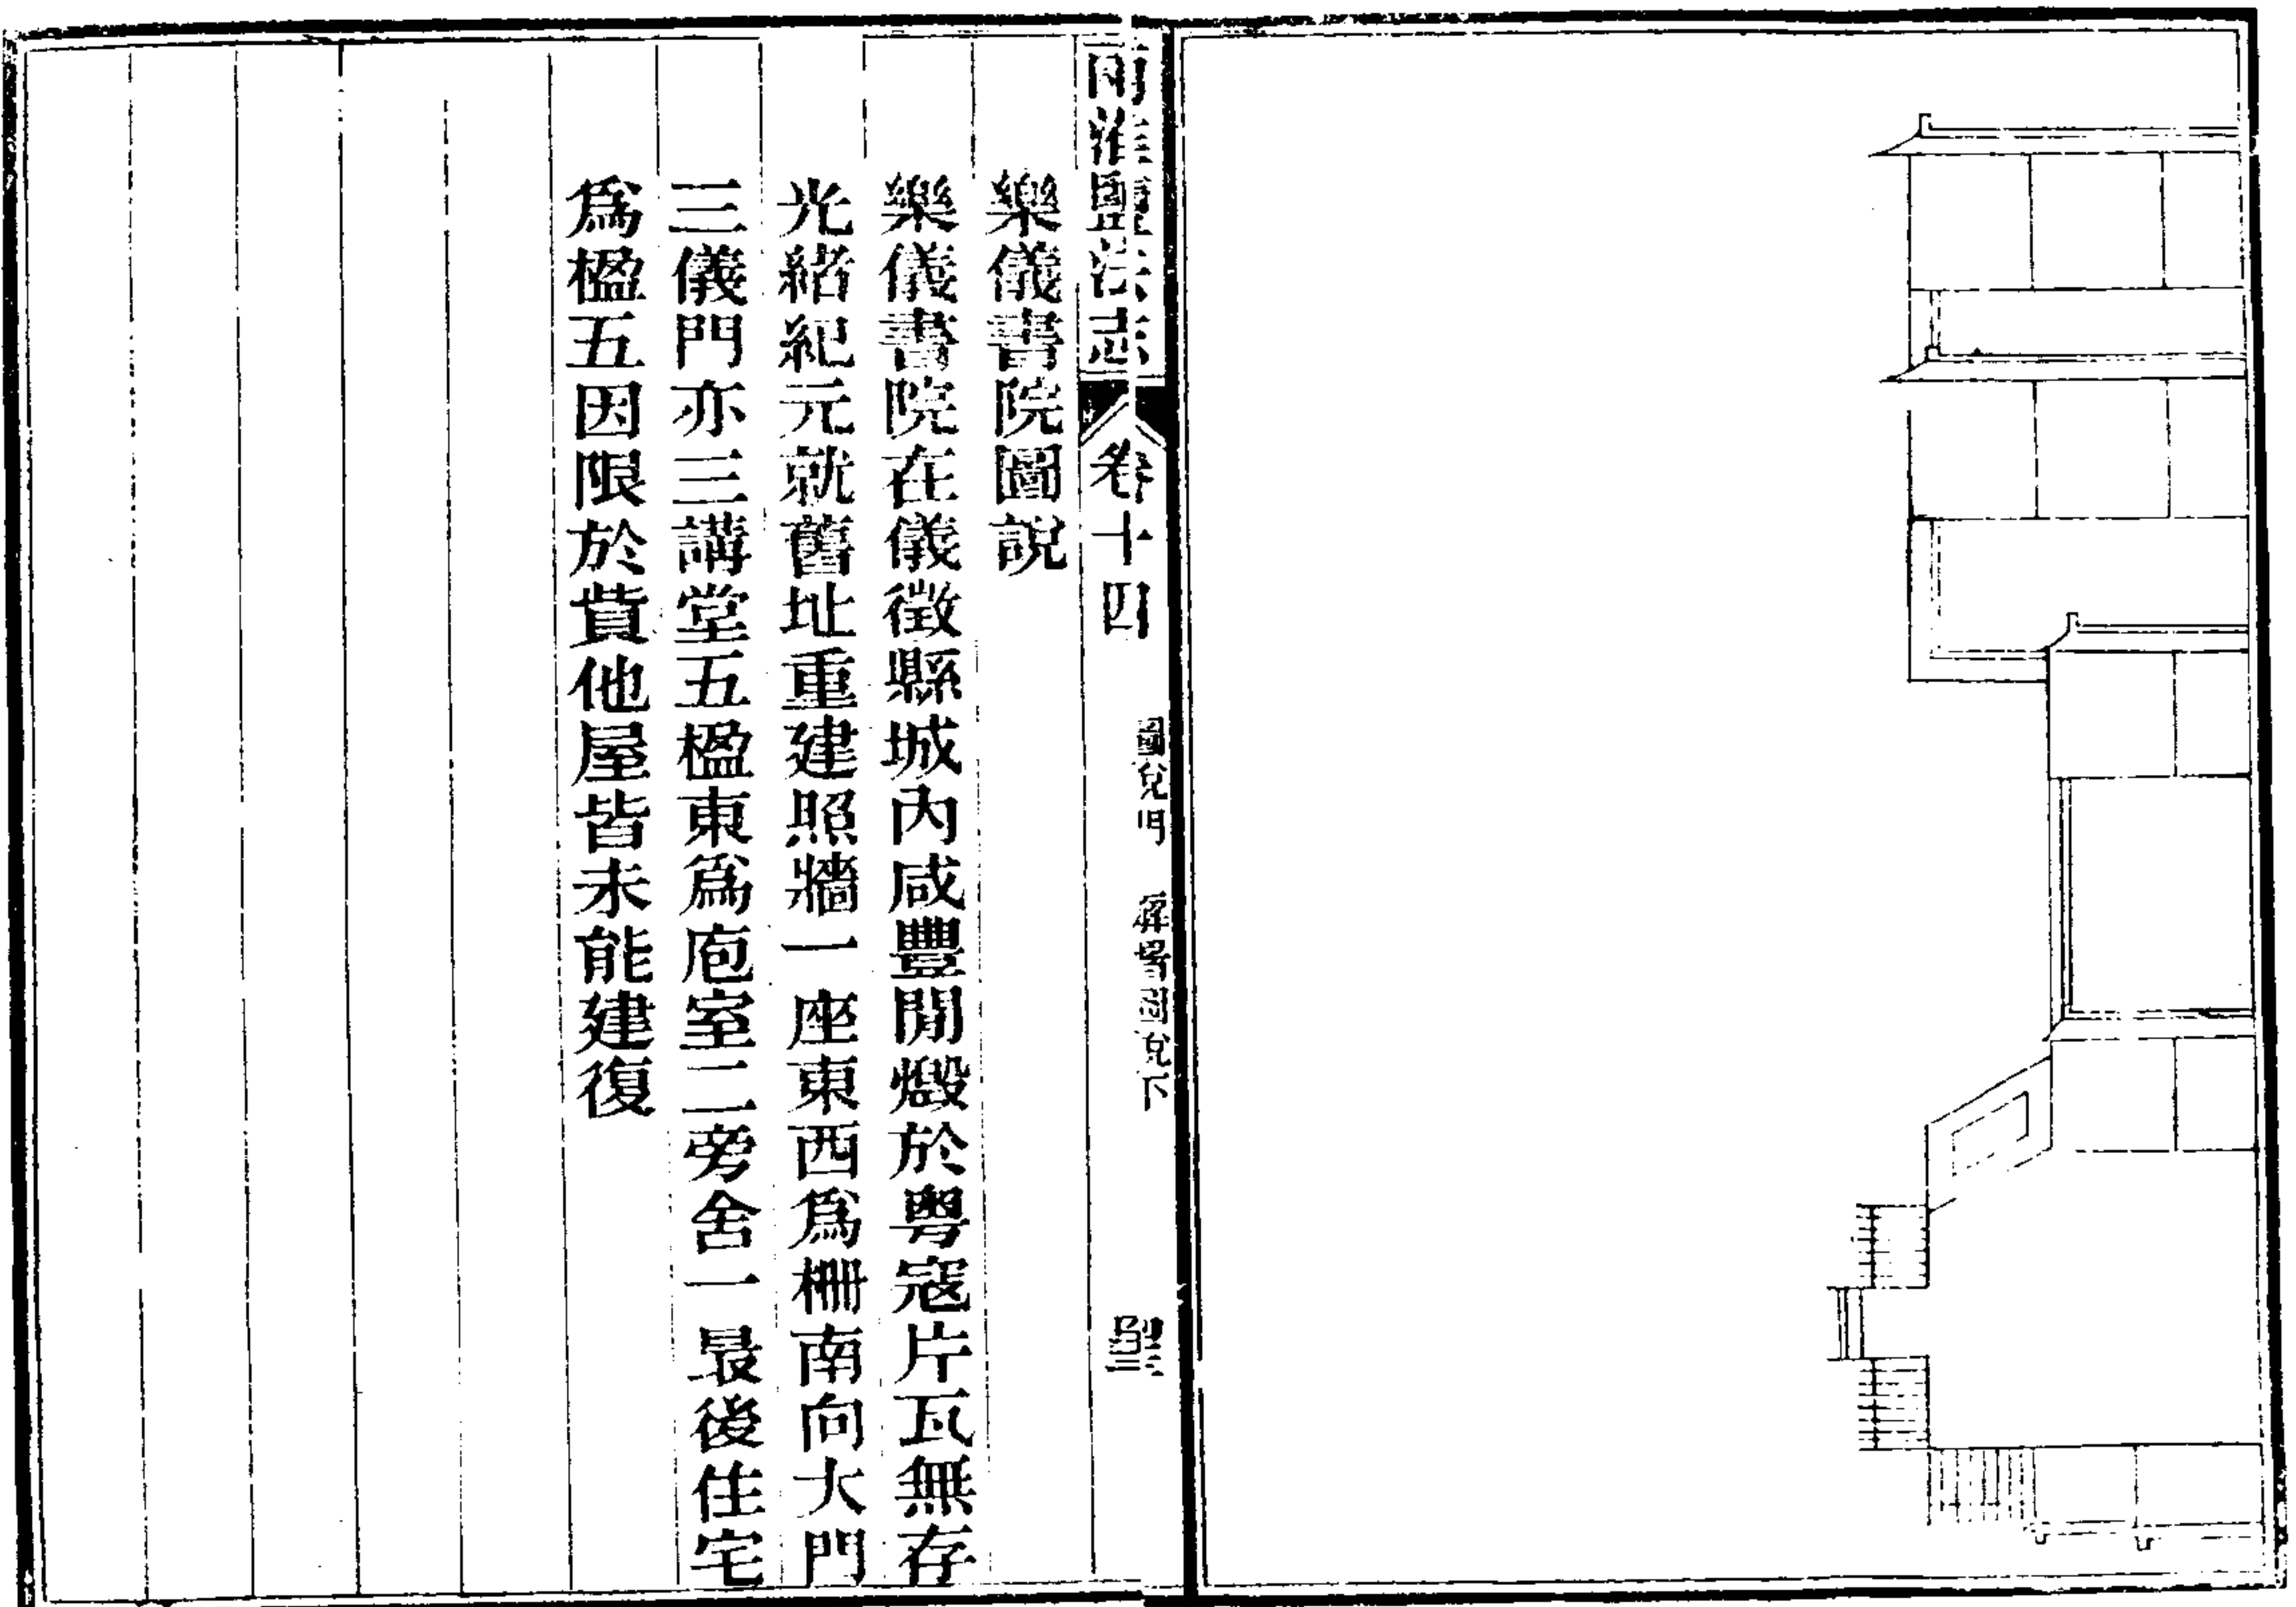 兩淮鹽法志
卷十四
圖說門 廨署圖說下
樂儀書院圖說
樂儀書院在儀徵縣城內咸豐閒燬於粵寇片瓦無存
光緒紀元就舊址重建照牆一座東西爲柵南向大門
三儀門亦三講堂五楹東爲庖室二旁舍一最後住宅
爲楹五因限於貲他屋皆未能建復